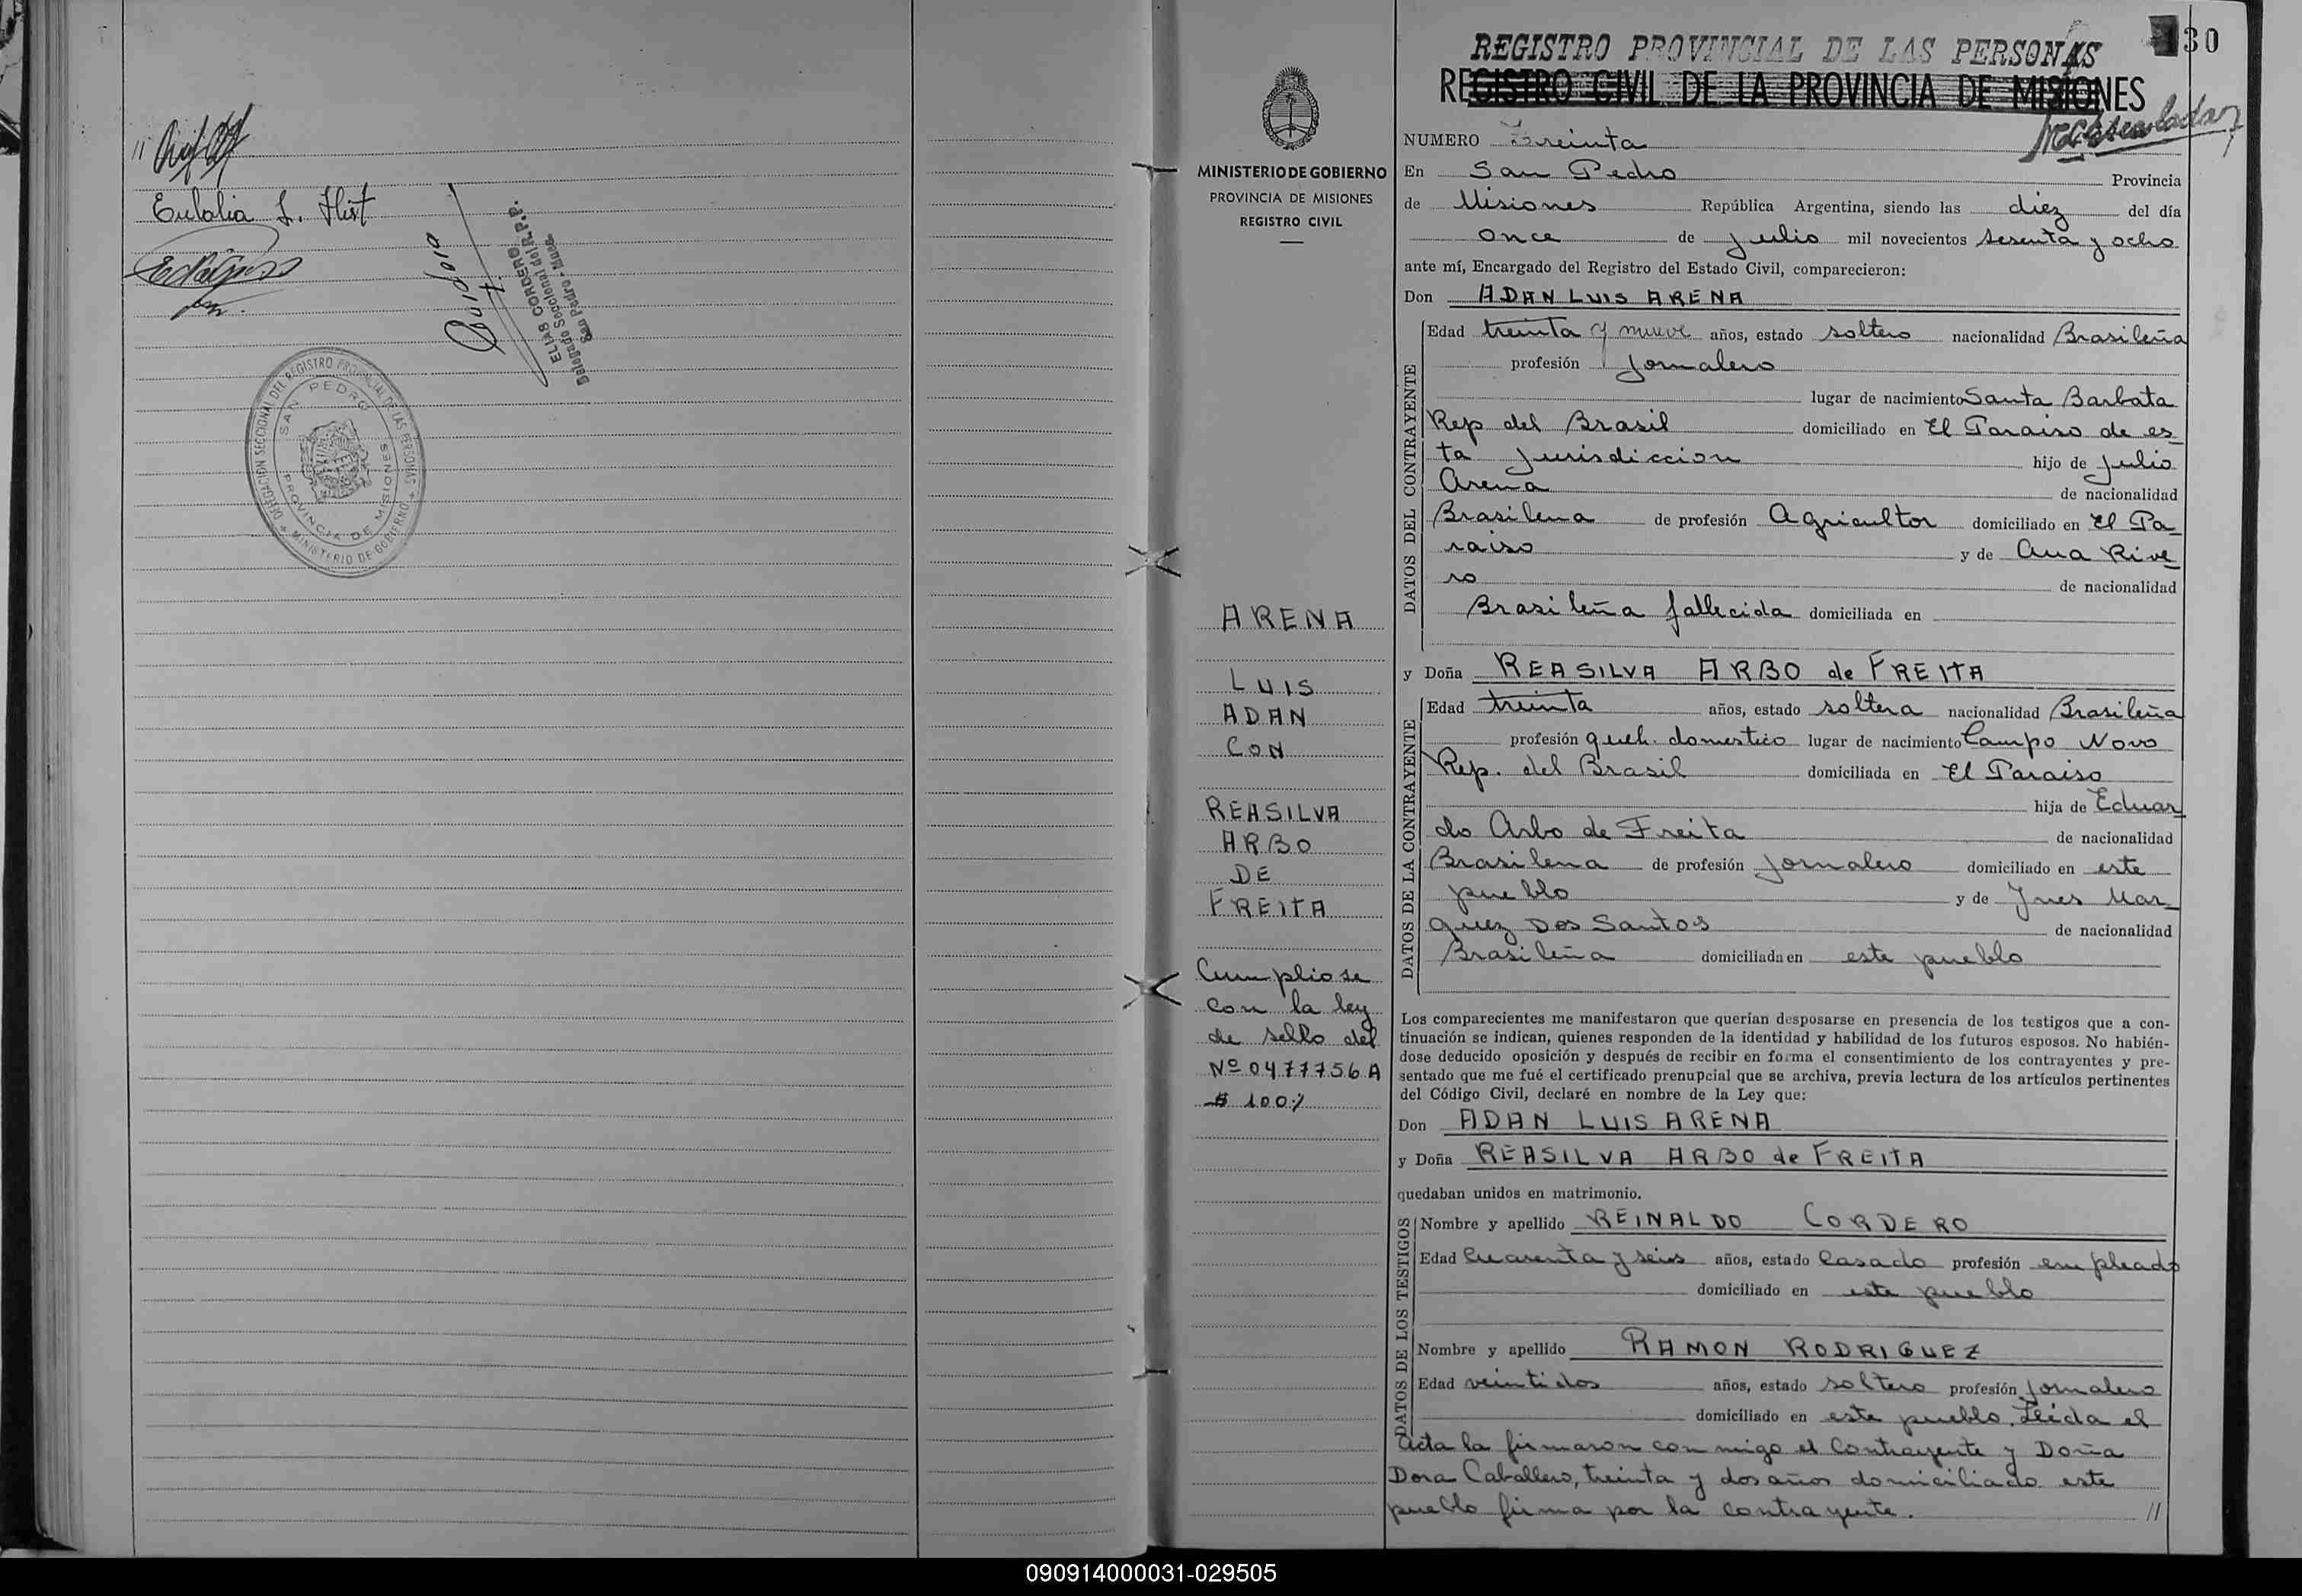 Eulalia L. Hist
Quiplaio
ELIAS CORDERO
Delegado Seccional del R.P.P.
San Pedro - Mnes.
DELEGACION SECCIONAL DEL REGISTRO PROVINCIAL DE LAS PERSONAS
MINISTERIO DE GOBIERNO
SAN PEDRO
PROVINCIA DE MISIONES
MINISTERIO DE GOBIERNO
PROVINCIA DE MISIONES
REGISTRO CIVIL
ARENA
LUIS
ADAN
CON
REASILVA
ARBO
DE
FREITA
Cumpliose
con la ley
de sello del
Nº 0477756 A
$ 100%
REGISTRO PROVINCIAL DE LAS PERSONAS
30
REGISTRO CIVIL DE LA PROVINCIA DE MISIONES
NUMERO Treinta
En San Pedro Provincia
de Misiones República Argentina, siendo las diez del día
once de Julio mil novecientos sesenta y ocho
ante mí, Encargado del Registro del Estado Civil, comparecieron:
Don ADAN LUIS ARENA
DATOS DEL CONTRAYENTE
Edad treinta y nueve años, estado soltero nacionalidad Brasileña
profesión Jornalero
lugar de nacimiento Santa Barbata
Rep del Brasil domiciliado en El Paraiso de es_
ta jurisdiccion hijo de Julio
Arena de nacionalidad
Brasilena de profesión Agricultor domiciliado en El Pa_
raiso y de Ana Rive_
ro de nacionalidad
Brasileña fallecida domiciliada en
y Doña REASILVA ARBO de FREITA
DATOS DE LA CONTRAYENTE
Edad treinta años, estado soltera nacionalidad Brasileña
profesión queh. domestico lugar de nacimiento Campo Novo
Rep. del Brasil domiciliada en El Paraiso
hija de Eduar_
do Arbo de Freita de nacionalidad
Brasilena de profesión Jornalero domiciliado en este
pueblo y de Ynes Mar_
quez Dos Santos de nacionalidad
Brasileña domiciliada en este pueblo
Los comparecientes me manifestaron que querían desposarse en presencia de los testigos que a con-
tinuación se indican, quienes responden de la identidad y habilidad de los futuros esposos. No habién-
dose deducido oposición y después de recibir en forma el consentimiento de los contrayentes y pre-
sentado que me fué el certificado prenupcial que se archiva, previa lectura de los artículos pertinentes
del Código Civil, declaré en nombre de la Ley que:
Don ADAN LUIS ARENA
y Doña REASILVA ARBO de FREITA
quedaban unidos en matrimonio.
DATOS DE LOS TESTIGOS
Nombre y apellido REINALDO CORDERO
Edad Cuarenta y seis años, estado Casado profesión empleado
domiciliado en este pueblo
Nombre y apellido RAMON RODRIGUEZ
Edad veintidos años, estado soltero profesión Jornalero
domiciliado en este pueblo. Leida el
acta la firmaron con migo el Contrayente y Doña
Dora Caballero, treinta y dos años domiciliado este
pueblo firma por la contrayente. //
090914000031-029505